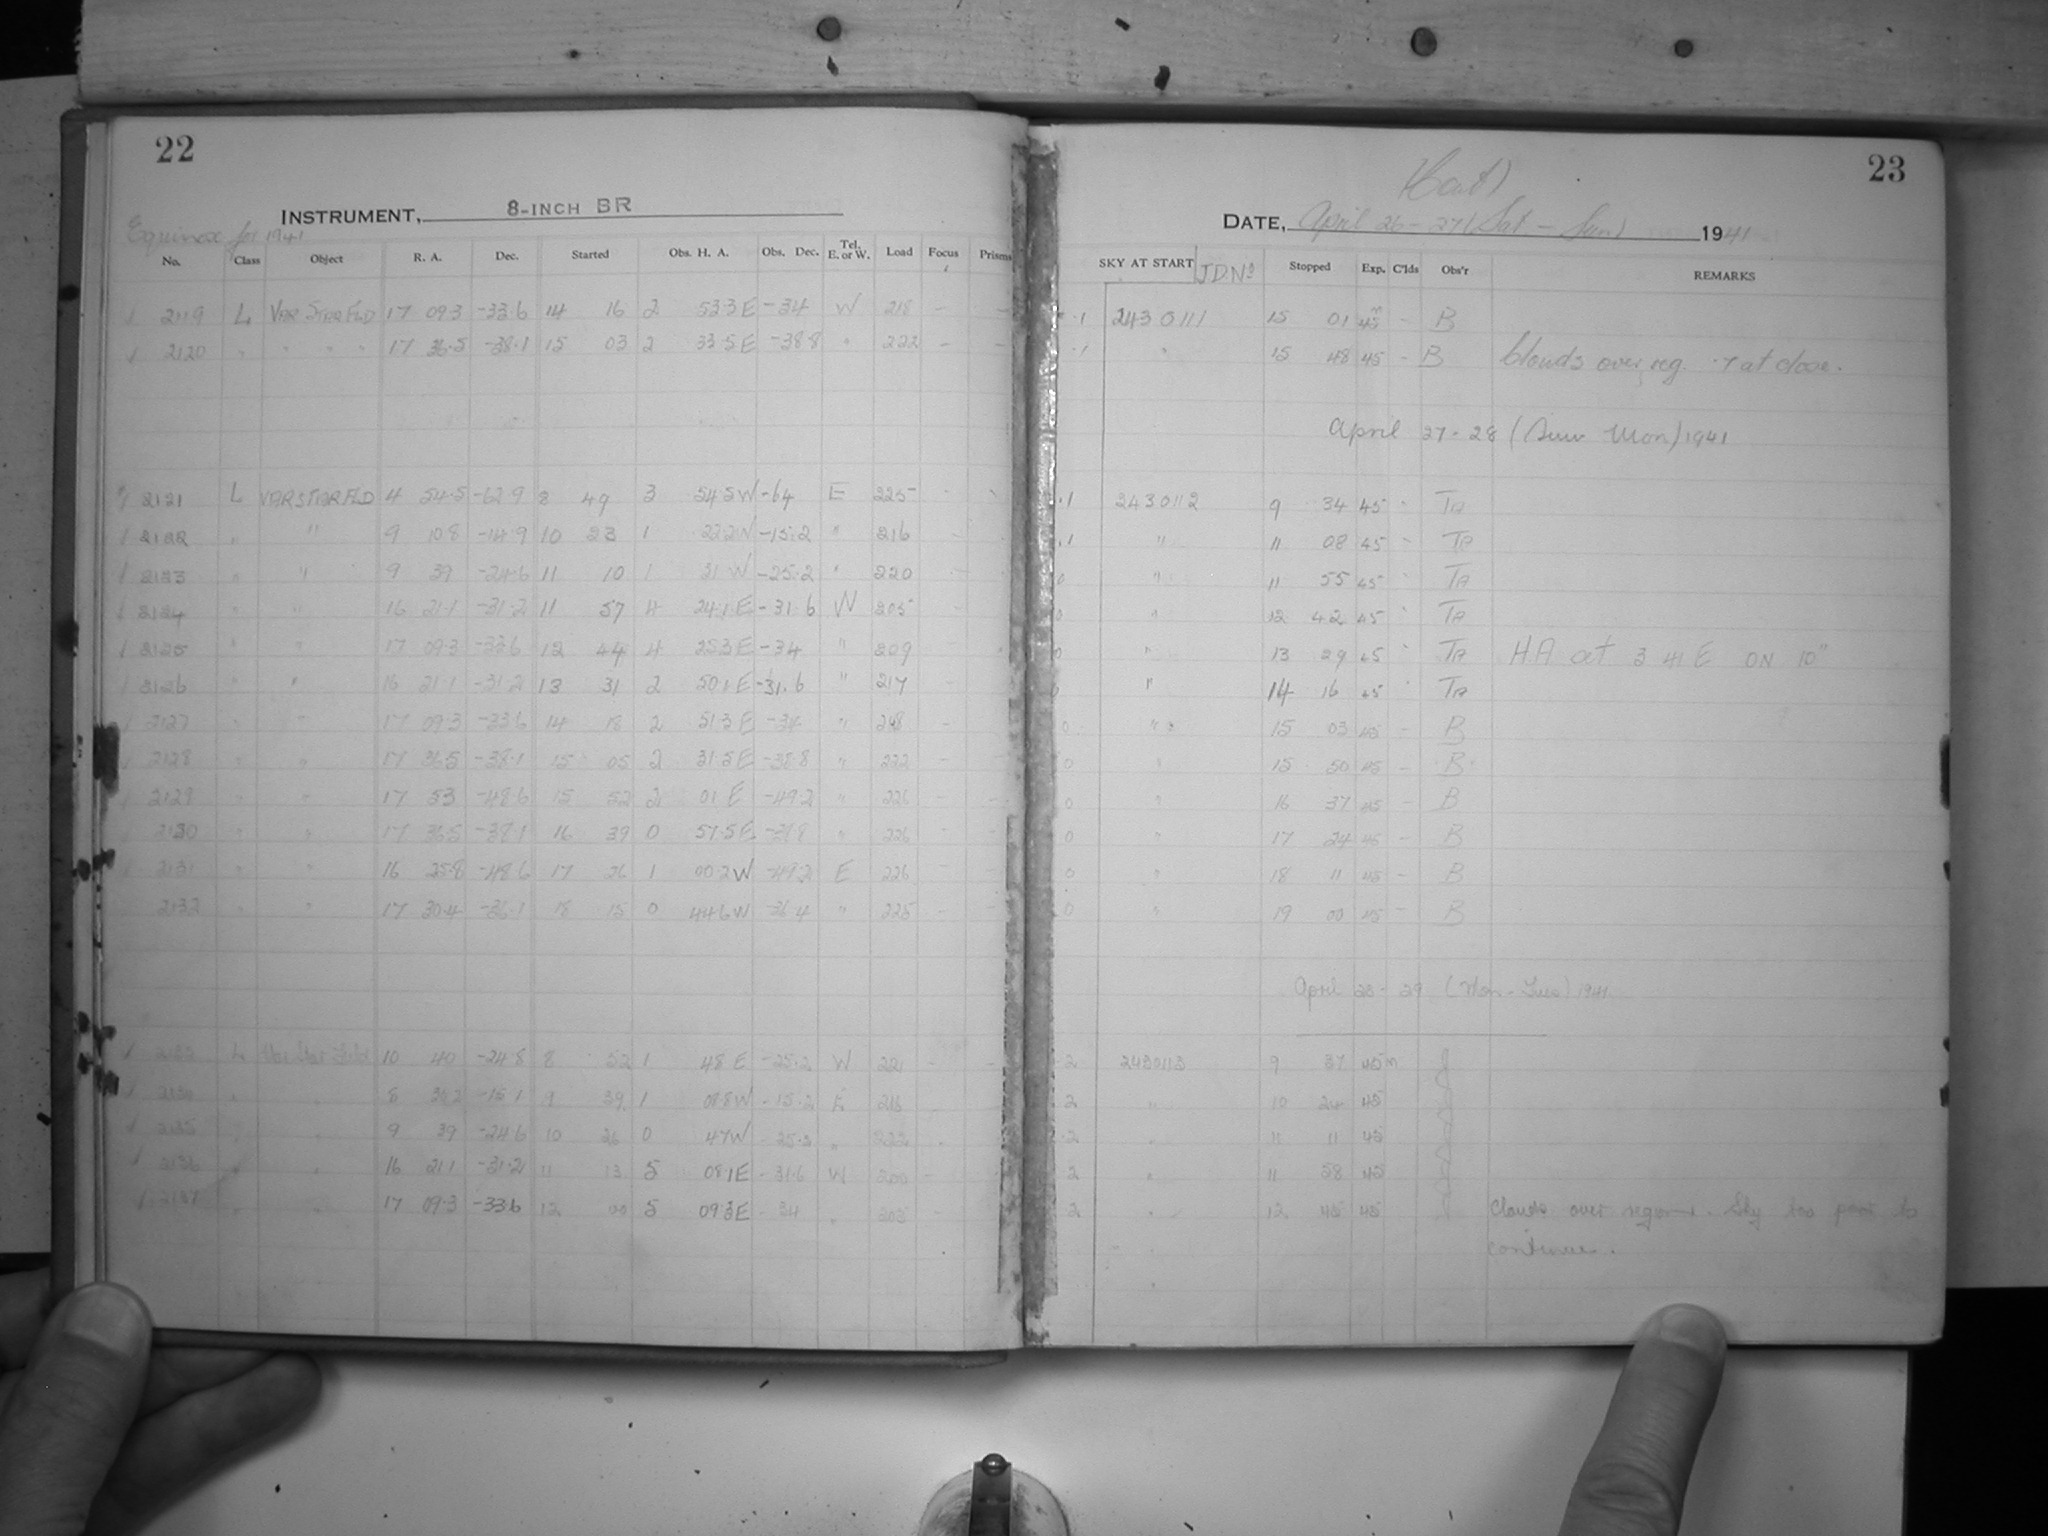 22
INSTRUMENT, 8-INCH BR
Equinox for 1941
No. Class Object R. A. Dec. Started Obs. H. A. Obs. Dec. Tel. E. or W. Load Focus Prisms
2119 L VAR STAR FLD 17 09.3 -33.6 14 16 2 53.3 E -34 W 218 - -
2120 " " " " 17 36.5 -38.1 15 03 2 33.5 E -38.8 " 222 - -
2121 L VAR STAR FLD 4 54.5 -62.9 8 49 3 54.5 W -64 E 225
2122 " " 9 10.8 -14.9 10 23 1 22.2 W -15.2 " 216
2123 " " 9 39 -24.6 11 10 1 31 W -25.2 " 220
2124 " " 16 21.1 -31.2 11 57 4 24.1 E -31.6 W 205
2125 " " 17 09.3 -33.6 12 44 4 25.3 E -34 " 209
2126 " " 16 21.1 -31.2 13 31 2 50.1 E -31.6 " 217
2127 " " 17 09.3 -33.6 14 18 2 51.3 E -34 " 218
2128 " " 17 36.5 -38.1 15 05 2 31.5 E -38.8 " 222 - -
2129 " " 17 53 -48.6 15 52 2 01 E -49.2 " 226 - -
2130 " " 17 36.5 -38.1 16 39 0 57.5 E -38.8 " 226 - -
2131 " " 16 25.8 -48.6 17 26 1 00.2 W -49.2 E 226 - -
2132 " " 17 30.4 -36.1 18 15 0 44.6 W -36.4 " 225 - -
2133 L Var Star Field 10 40 -24.8 8 52 1 48 E -25.2 W 221 - -
2134 8 -15.1 9 39 1 08.8 W -15.2 E 216
2135 9 39 -24.6 10 26 0 47 W -25.2 " 222
2136 16 21.1 -31.2 11 13 5 08.1 E -31.6 W 200
2137 17 09.3 -33.6 12 00 5 09.3 E -34 " 203
23
(Cont)
DATE, April 26-27 (Sat - Sun) 1941
SKY AT START J.D. No Stopped Exp. C'lds Obs'r REMARKS
.1 2430111 15 01 45m - B
.1 " 15 48 45 - B Clouds over reg. .7 at close.
April 27-28 (Sun Mon) 1941
.1 2430112 9 34 45 TA
.1 " 11 08 45 TA
0 " 11 55 45 TA
0 " 12 42 45 TA
0 " 13 29 45 TA H.A at 3 41 E ON 10"
0 " 14 16 45 TA
0 " 15 03 45 - B
0 " 15 50 45 - B
0 " 16 37 45 - B
0 " 17 24 45 - B
0 " 18 11 45 - B
0 " 19 00 45 - B
April 28-29 (Mon-Tues) 1941
2 2430113 9 37 45m J
2 " 10 24 45
2 " 11 11 45
2 " 11 58 45
2 " 12 45 45 Clouds over region. Sky too poor to
continue.